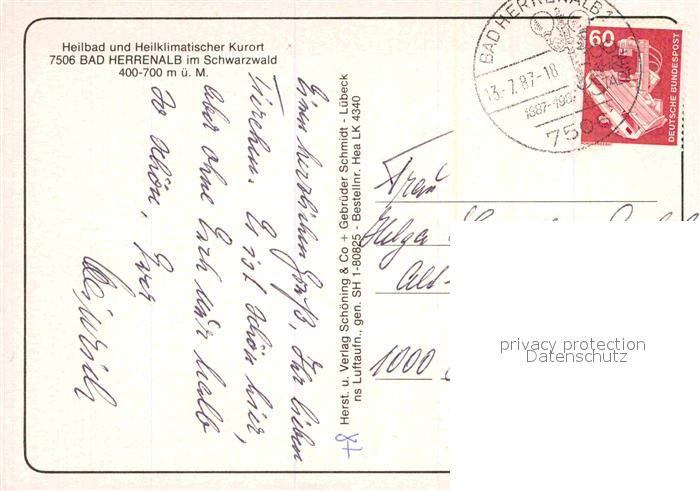 Heilbad und Heilklimatischer Kurort
7506 BAD HERRENALB im Schwarzwald
400-700 m ü. M.
Einen herzlichen Gruß, Ihr lieben
Es ist schön hier,
aber ohne Euch nur halb
so schön, Euer
Heinrich
87
Herst. u. Verlag Schöning & Co + Gebrüder Schmidt - Lübeck
ns Luftaufn., gen. SH 1-80825 - Bestellnr. Hea LK 4340
BAD HERRENALB 1
13.-7.87-18
1887-198
750
60
DEUTSCHE BUNDESPOST
Frau
Helga
Alt-
1000
privacy protection
Datenschutz